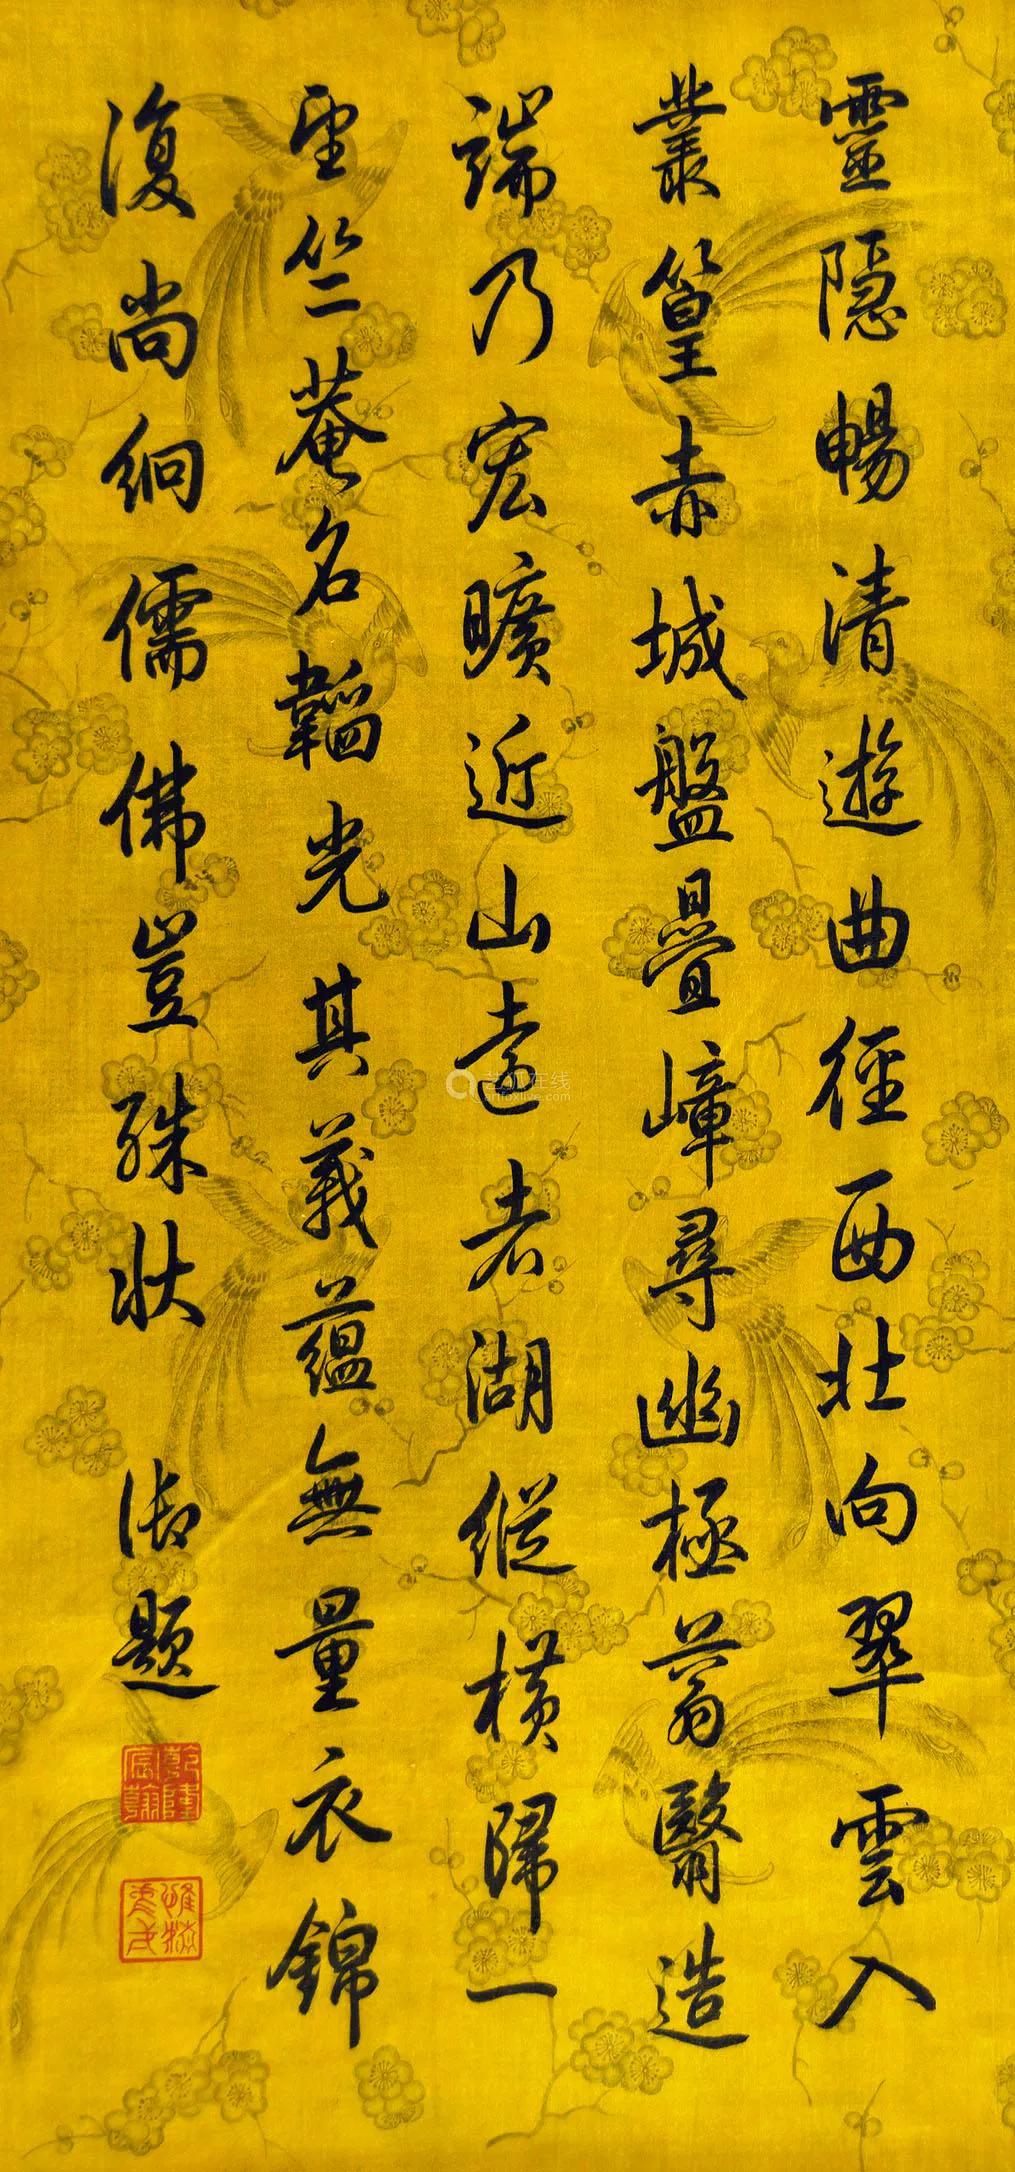 靈隱暢清遊曲徑西北向翠雲入
叢篁赤城盤疊嶂尋幽極蓊翳造
端乃宏曠近山遠者湖縱橫歸一
望竺菴名韜光其義蘊無量衣錦
復尚絅儒佛豈殊狀 御題
乾隆宸翰
惟精惟一
艺狐在线
artfoxlive.com